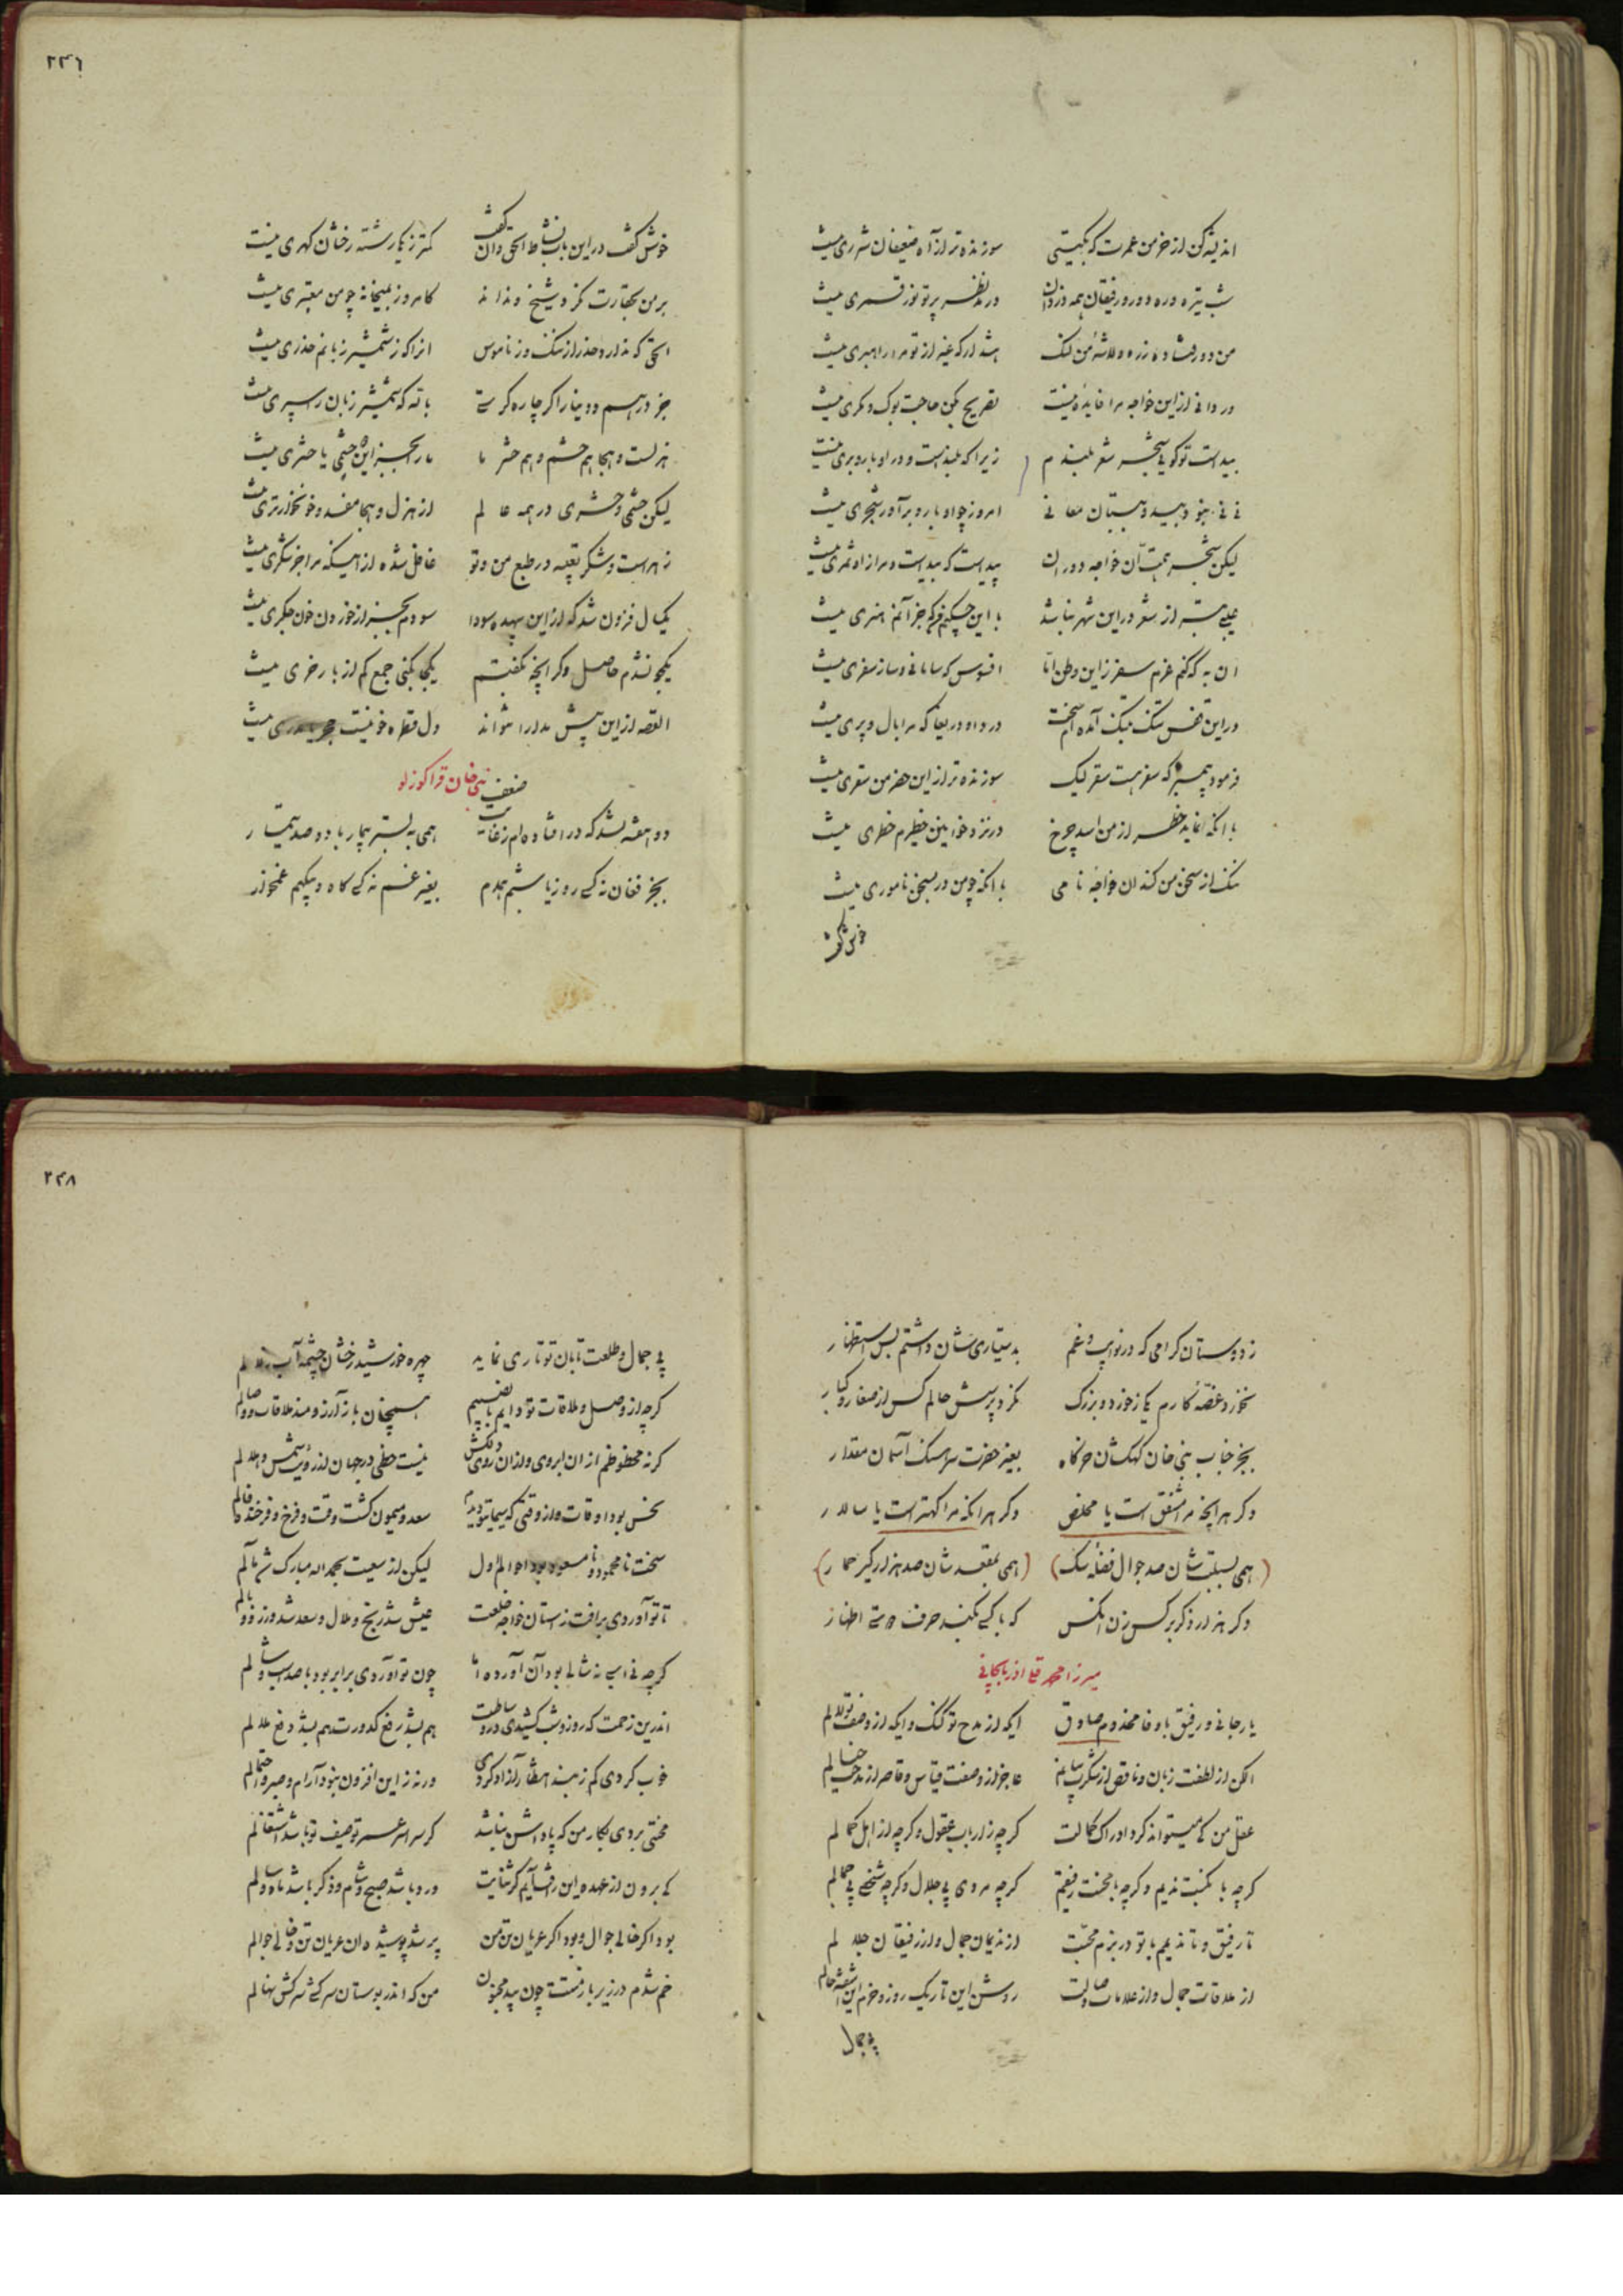 ۲۴۶
اندیشه کن از خرمن عمرت که بگیتی سوزنده تر از آه ضعیفان شرری نیست
شب تیره و ره دور و رفیقان همه دزدان در مد نظر پرتو نور قمری نیست
من دور فتاده ز ره و لاشهٔ من لنگ هشدار که غیر از تو مرا راهبری نیست
دردا که از این خواجه مرا فایده نیست تصریح بکن حاجت بوک و مگری نیست
بید است تو گویی شجر شعر بلندم زیرا که بلند است و در او بار و بری نیست
نی نی نبود بید و ببستان معانی امروز چو او بارور شجری نیست
لیکن شجر همت آن خواجه دوران بید است که بید است و مرا از او ثمری نیست
عیبی بتر از شعر در این شهر نباشد با این که جز آنم هنری نیست
آن به که کنم عزم سفر زاین وطن اما افسوس که سامانی و ساز سفری نیست
در این قفس تنگ به تنگ آمده ام سخت درد او دریغا که مرا بال و پری نیست
فرمود پیمبر که سفر هست سقر لیک سوزنده تر از این حضر من سقری نیست
با آنکه نماید حذر از من اسد چرخ در نزد خوانین خطرم خطری نیست
ننگ از سخن من کند آن خواجه نامی با آنکه چو من در سخن ناموری نیست
خوش گفت
خوش گفت در این باب نشاط الحق و آن گفت کمتر ز یکی رشته رخشان گهری نیست
بر من بحقارت نگرد شیخ و نداند کامروز بمیخانه چو من معتبری نیست
الحق که ندارد حذر از ننگ و ز ناموس آنرا که ز شمشیر زبانم حذری نیست
جز درهم و دینار اگر چاره گرستی بالله که شمشیر زبان را سپری نیست
هزلست و هجا هم حشم و هم حشر ما ما را بجز این حشمی یا حشری نیست
لیکن حشمی و حشری در همه عالم از هزل و هجا مفسد و خونخوارتری نیست
زهر است و شکر تعبیه در طبع من و تو غافل شده از اینکه مرا جز شکری نیست
یکسال فزون شد که از این بیهده سودا سودم بجز از خوردن خون جگری نیست
یکجو نشدم حاصل و گر آنچه بگفتم یکجا بکنی جمع کم از بار خری نیست
القصه از این بیش مدارا نتواند دل قطره خونیست
نبی خان قراگوزلو
دو هفته بشد که در افتاده ام همی به بستر بیمار با دو صد تیمار
بجز فغان نه کسی روز یا شبم همدم بغیر غم نه کسی گاه و بیگهم غمخوار
۲۴۸
ز دوستان گرامی که در نوایب و غم بدستیاری شان داشتم بس استظهار
نخورد غصه کارم یکی ز خورد و بزرگ نکرد پرسش حالم کس از صغار و کبار
بجز جناب نبی خان کهکشان خرگاه بغیر حضرت سرهنگ آسمان مقدار
و گر هر آنچه مرا مشفق است یا مخلص و گر هر آنکه مرا کهتر است یا سالار
(همی بسبلت شان صد جوال فضله سگ) (همی بمقعد شان صد هزار کیر حمار)
و گر هزار دگر بر کس زن آنکس که با کسی نکند حرف دوستی اظهار
میرزا محمد تقی اذربایجانی
یار جانی و رفیق با وفا مخدوم صادق ایکه از مدح تو گنگ و ایکه از وصف تو لالم
الکن از لطفت زبان و ناقص از شکرت بیانم عاجز از وصفت قیاس و قاصر از مدحت خیالم
عقل من کی میتواند کرد ادراک کمالت گرچه ز ارباب عقول و گرچه از اهل کمالم
گرچه با نکبت ندیم و گرچه با محنت رفیقم گرچه مردی بی جلال و گرچه شخصی بی جمالم
تا رفیق و تا ندیمم با تو در بزم محبت از ندیمان جمال و از رفیقان جلالم
از ملاقات جمال و از علامات وصالت روشن این تاریک روز و خرم این آشفته حالم
بی جمال
بی جمال و طلعت تابان تو تاری نماید چهره خورشید رخشان چشمه آب زلالم
گرچه از وصل و ملاقات تو دایم با نصیبم همچنان باز آرزومند ملاقات و وصالم
گر نه محظوظم از آن ابروی و از آن روی دلکش نیست حظی در جهان از رؤیت شمس و هلالم
نحس بود اوقات و از وقتی که سیمای تو دیدم سعد و میمون گشت وقت و فرخ و فرخنده فالم
سخت نامحمود و نامسعود بود احوالم اول لیکن از سعیت بحمدالله مبارک شد مآلم
تا تو آوردی برافت ز آستان خواجه خلعت عیش شد رنج و ملال و سعد شد وزر و وبالم
گرچه نی اسب و نه شالی بود آن آورده اما چون تو آوردی برابر بود با صد اسب و شالم
اندرین زحمت که روز و شب کشیدی در وساطت هم بشد رفع کدورت هم بشد دفع ملالم
خوب کردی کم ز بند انتظار آزاد کردی ور نه زاین افزون نبود آرام و صبر و احتمالم
محنتی بردی بکار من که پاداشش نباشد گر سراسر عمر توصیف تو باشد اشتغالم
کی برون از عهده این رافت آیم گر ثنایت ورد باشد صبح و شام و ذکر باشد ماه و سالم
بود اگر خالی جوال و بود اگر عریان تن من پر شد و پوشیده آن عریان تن و خالی جوالم
خم شدم در زیر بار منتت چون بید مجنون من که اندر بوستان سرکشی سرکش نهالم